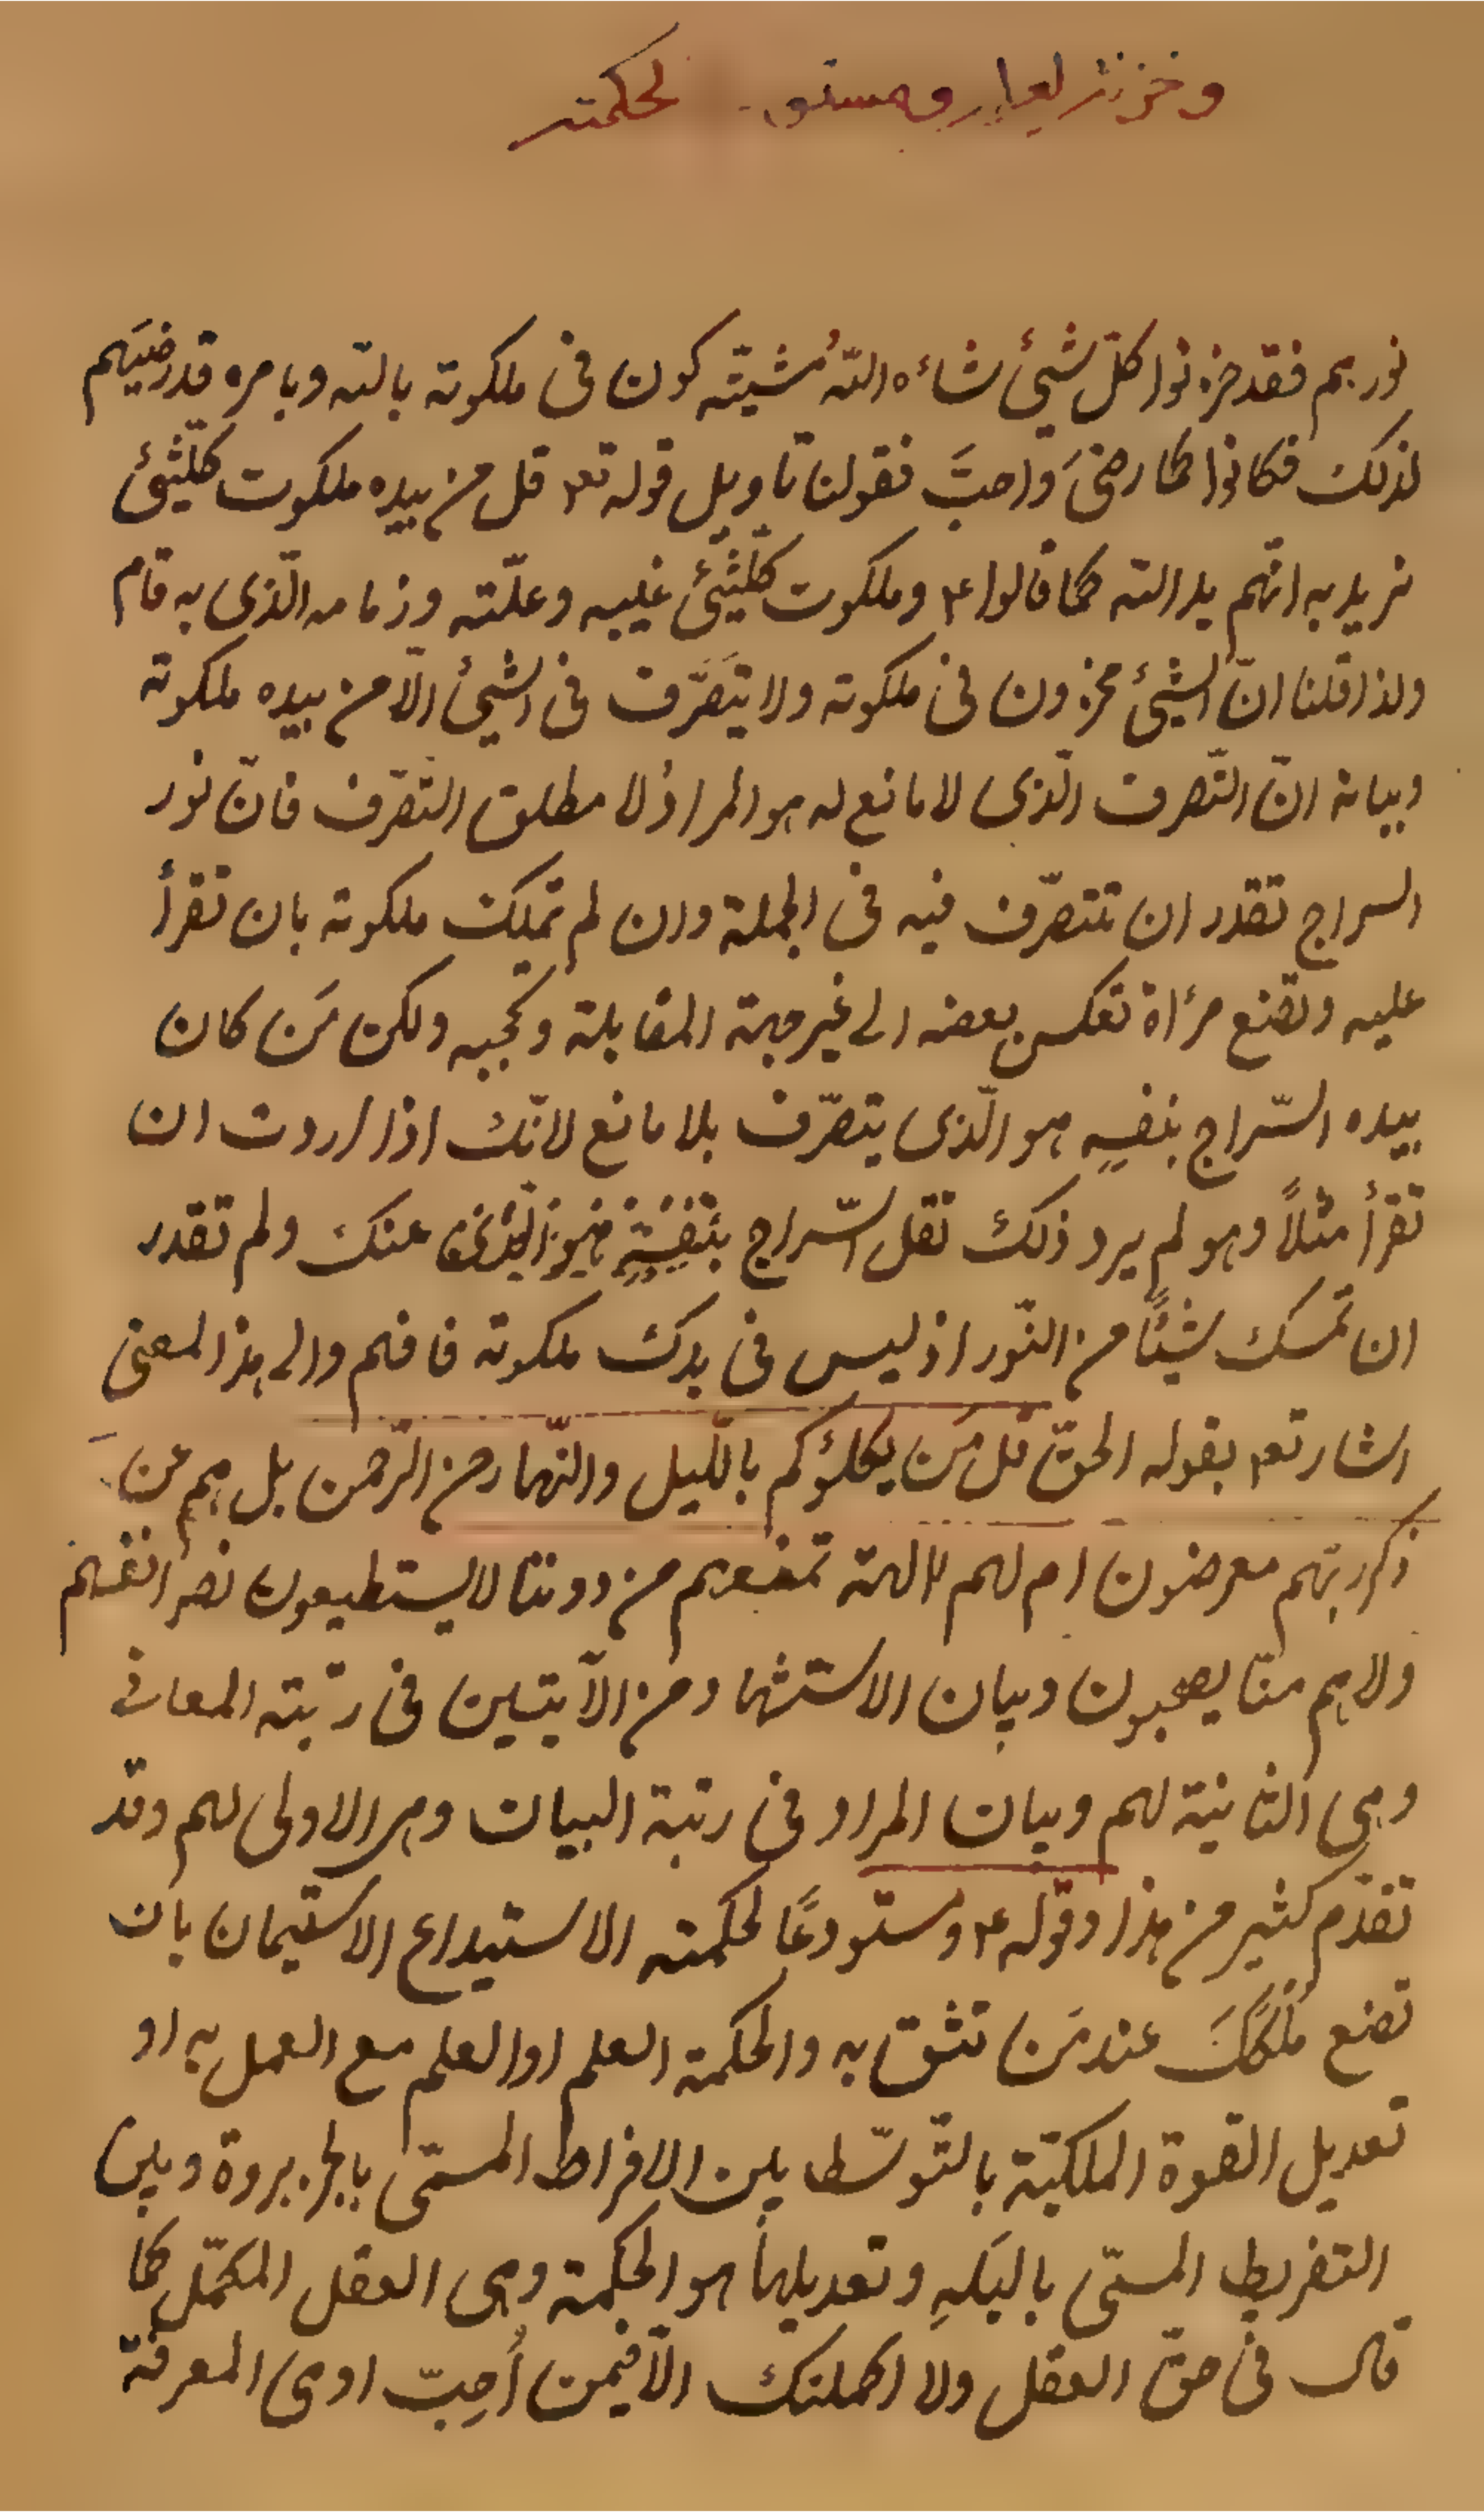 وخزنة لعلمه ومستودعا لحكمته
نورهم فقد خزنوا كلّ شيئ شاءه اللّهُ مشيّته كون فى ملكوته بالله وبامره قد رضيَهم
لذلك فكانوا كما رضىَ واحبَّ فقولنا تاويل قوله تع۴ قل من بيده ملكوت كلّشيئ
نريد به انّهم يد الله كما قالوا ع۴ وملكوت كلّشيئ غيبه وعلّته وزمامه الّذى به قام
ولذا قلنا انّ الشيئ مخزون فى ملكوته ولا يتَصَرَّف فى الشيئ الّا من بيده ملكوته
وبيانه انّ التّصرف الّذى لا مانع له هو المراد لا مطلق التّصرّف فانّ نور
السراج تقدر ان تتصرّف فيه فى الجملة وان لم تملك ملكوته بان تقرأ
عليه وتضع مرأة تعكس بعضه الى غير جهة المقابلة وتحجبه ولكن مَن كان
بيده السّراج بنفسِهِ هو الّذى يتصرّف بلا مانع لانّك اذا اردت ان
تقرأ مثلاً وهو لم يرد ذلك نقل السّراج عنك ولم تقدر
ان تمسك شيئًا من النّور اذ ليس فى يدك ملكوته فافهم والى هذا المعنى
اشار تع۴ بقوله الحقّ قل مَن يكلؤكم بالّليل والنّهار من الرّحمن بل هم عن
ذكر ربّهم معرضون ام لهم الهة تمنعهم من دوننا لا يستطيعون نصر انفسهم
ولا هم منّا يصحبون وبيان الاستشهاد من الآيتين فى رتبة المعانى
وهى الثانية لهم وبيان المراد فى رتبة البيان وهى الاولى لهم وقد
تقدّم كثير من هذا وقوله ع۴ ومستودعًا لحكمته الاستيداع الاستيمان بان
تضع مُلككَ عند مَن تثق به والحكمة العلم او العلم مع العمل به او
تعديل القوة الملكيّة بالتّوسّط بين الافراط المسمّى بالجربزوة وبين
التفريط المسمّى بالبَلَهِ وتعديلها هو الحكمة وهى العقل المكمّل كما
قال فى حقّ العقل ولا اكملنك الّا فيمن أُحِبّ او هى المعرفة